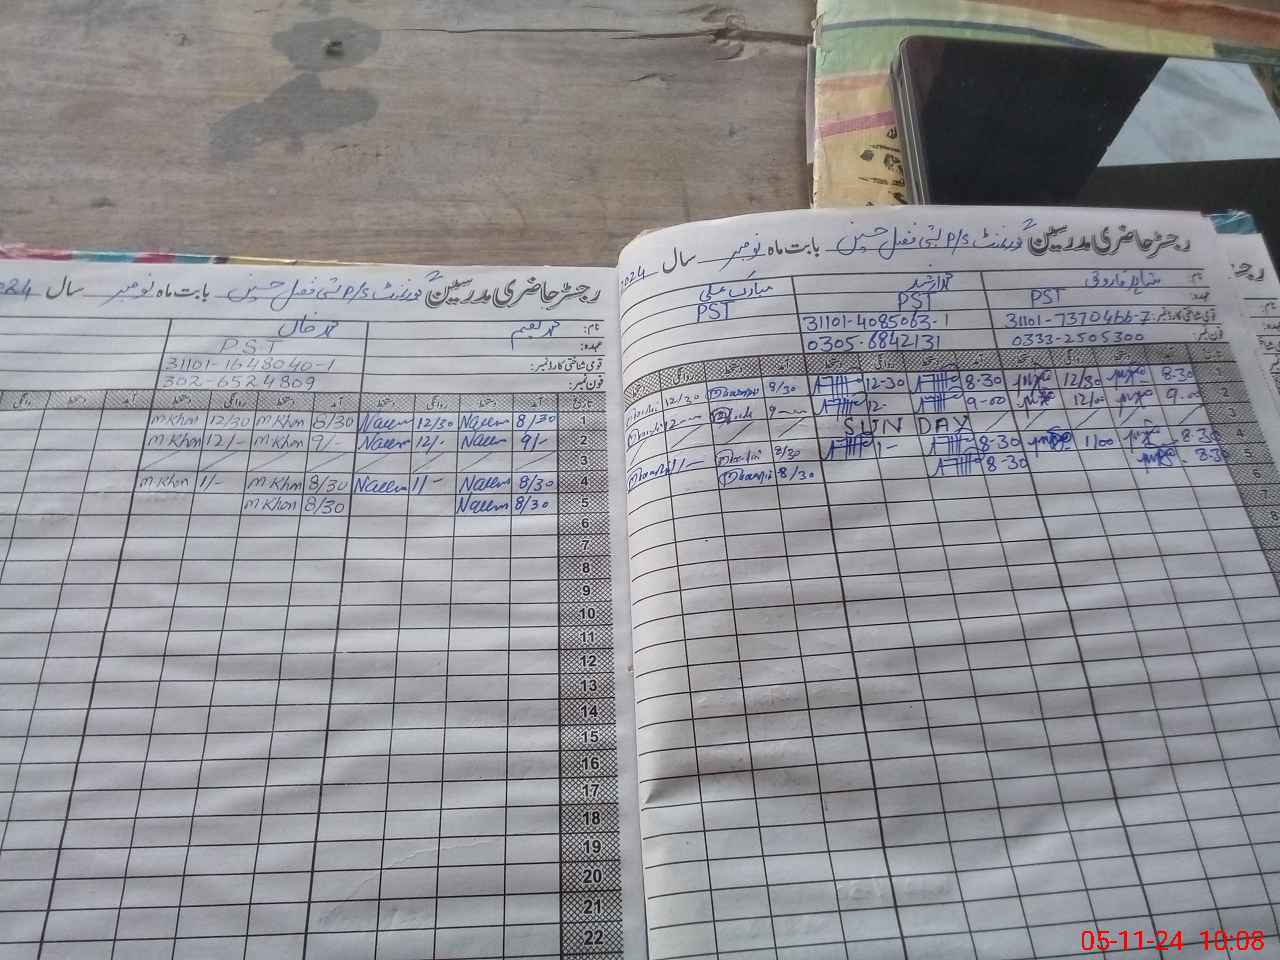 رجسٹر حاضری مدرسین گورنمنٹ P/S بستی فضل حسین بابت ماہ نومبر سال 2024
نام: شاہد فاروق محمد ارشد مبارک علی
عہدہ: PST PST PST
قومی شناختی کارڈ نمبر: 31101-7370466-7 31101-4085063-1
فون نمبر: 0333-2505300 0305-6842131
تاریخ آمد دستخط روانگی دستخط آمد دستخط روانگی دستخط آمد دستخط روانگی دستخط
1 8-30 12/30 8-30 12-30 8/30 12/30
2 9-00 12/00 9-00 12- 9- 12-
3 SUNDAY
4 8-30 1/00 8-30 1- 8/30 1/-
5 8-30 8-30 8/30
6
7
رجسٹر حاضری مدرسین گورنمنٹ P/S بستی فضل حسین بابت ماہ نومبر سال 2024
نام: محمد نعیم محمد خان
عہدہ: PST
قومی شناختی کارڈ نمبر: 31101-1648040-1
فون نمبر: 302-6524809
تاریخ آمد دستخط روانگی دستخط آمد دستخط روانگی دستخط آمد دستخط روانگی
1 8/30 Naeem 12/30 Naeem 8/30 M Khan 12/30 M Khan
2 9/- Naeem 12/- Naeem 9/- M Khan 12/- M Khan
3
4 8/30 Naeem 1/- Naeem 8/30 M Khan 1/- M Khan
5 8/30 Naeem 8/30 M Khan
6
7
8
9
10
11
12
13
14
15
16
17
18
19
20
21
22
05-11-24 10:08